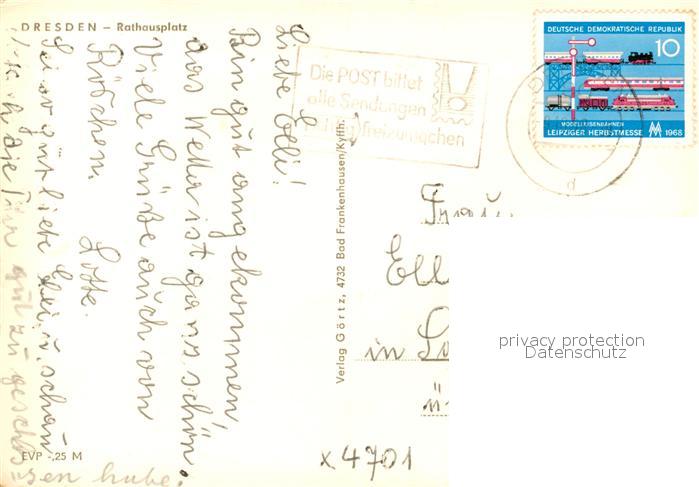 DRESDEN – Rathausplatz
Liebe Elli!
Bin gut angekommen,
das Wetter ist ganz schön.
Viele Grüße auch von
Röschen.
Lotte.
Sei so gut liebe Elli u. schau
ich die Tür gut zu geschlos
sen habe.
EVP -,25 M
Verlag Görtz, 4732 Bad Frankenhausen/Kyffh.
Die POST bittet
alle Sendungen
freizumachen
DEUTSCHE DEMOKRATISCHE REPUBLIK
10
MODELLEISENBAHNEN
LEIPZIGER HERBSTMESSE MM 1968
d
Frau
Ell
in
privacy protection
Datenschutz
x 4701